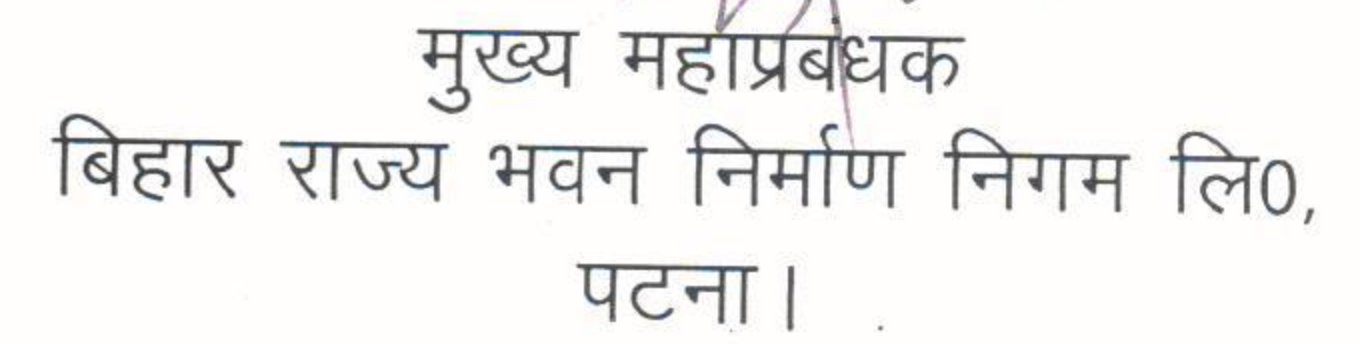 मुख्य महाप्रबंधक
बिहार राज्य भवन निर्माण निगम लि0,
पटना।